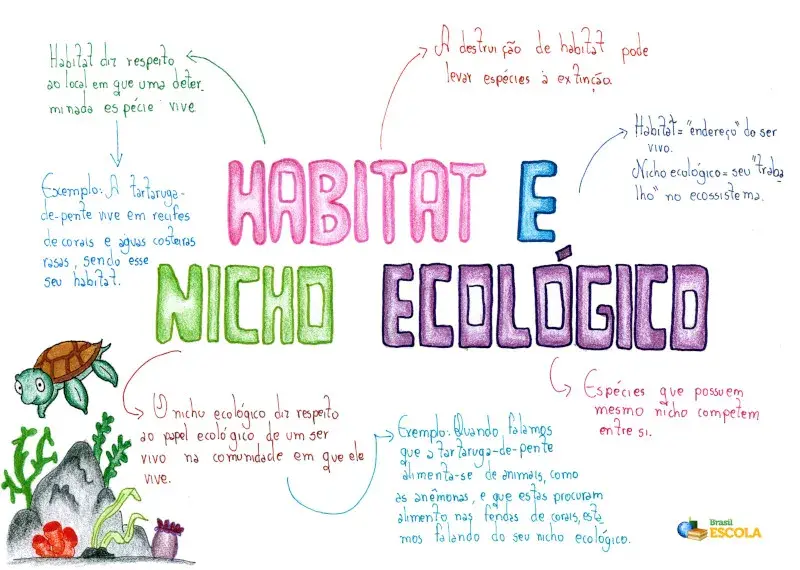 Habitat diz respeito
ao local em que uma deter-
minada espécie vive
Exemplo: A tartaruga-
de-pente vive em recifes
de corais e águas costeiras
rasas, sendo esse
seu habitat.
A destruição de habitat pode
levar espécies à extinção.
Habitat = "endereço" do ser
vivo.
Nicho ecológico = seu "traba
lho" no ecossistema.
HABITAT E
NICHO ECOLÓGICO
O nicho ecológico diz respeito
ao papel ecológico de um ser
vivo na comunidade em que ele
vive.
Exemplo: Quando falamos
que a tartaruga-de-pente
alimenta-se de animais, como
as anêmonas, e que estas procuram
alimento nas fendas de corais, esta
mos falando do seu nicho ecológico.
Espécies que possuem
mesmo nicho competem
entre si.
Brasil
ESCOLA